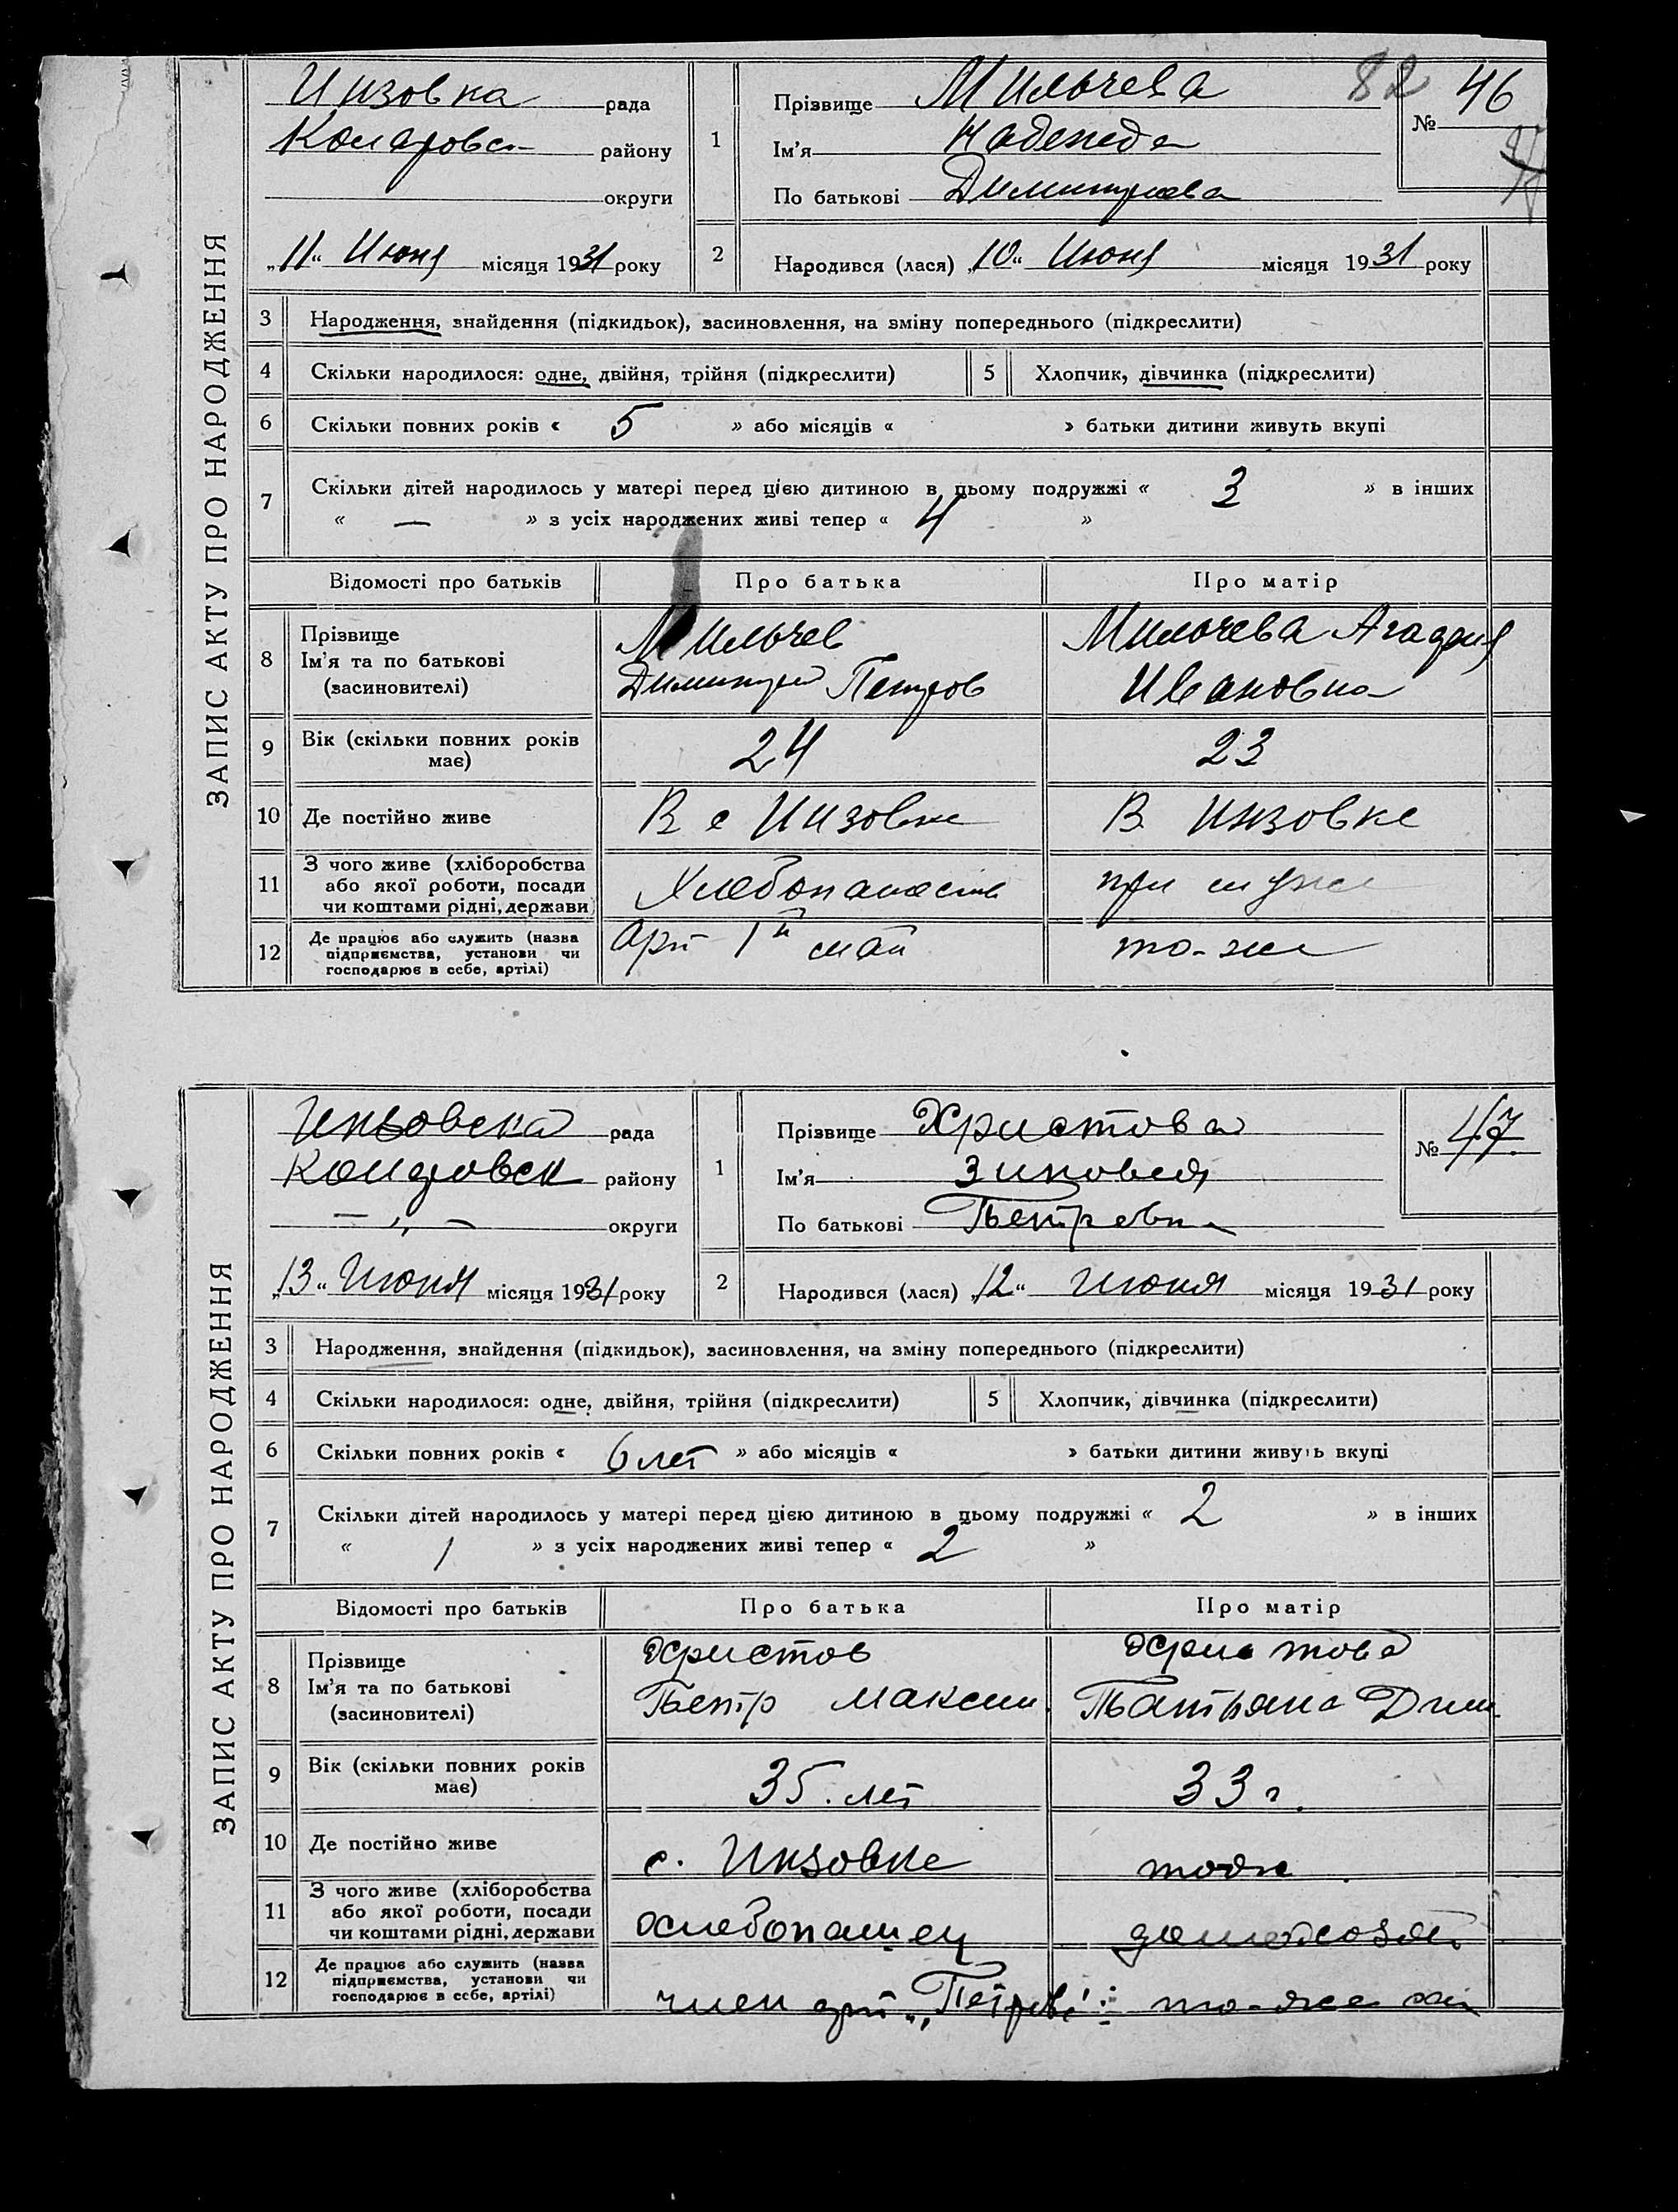 ЗАПИС АКТУ ПРО НАРОДЖЕННЯ
Инзовка рада
Коларовск района району
округи
„11“ Июня місяця 1931 року
82
№ 46
1 Прізвище Мильчева
Ім'я Надежда
По батькові Димитриева
2 Народився (лася) „10“ Июня місяця 1931 року
3 Народження, знайдення (підкидьок), засиновлення, на зміну попереднього (підкреслити)
4 Скільки народилося: одне, двійня, трійня (підкреслити) 5 Хлопчик, дівчинка (підкреслити)
6 Скільки повних років « 5 » або місяців « » батьки дитини живуть вкупі
7 Скільки дітей народилось у матері перед цією дитиною в цьому подружжі « 3 » в інших
« — » з усіх народжених живі тепер « 4 »
Відомості про батьків Про батька Про матір
8 Прізвище Ім'я та по батькові (засновителі)
Мильчев
Димитрий Петров
Мильчева Агафия
Ивановна
9 Вік (скільки повних років має) 24 23
10 Де постійно живе В с Инзовке В Инзовке
11 З чого живе (хліборобства або якої роботи, посади чи коштами рідні, держави
Хлебопашеств при муже
12 Де працює або служить (назва підприємства, установи чи господарює в себе, артілі)
Арт 1й мая то-же
ЗАПИС АКТУ ПРО НАРОДЖЕННЯ
Инзовска рада
Коларовск району
— „ — округи
„13“ Июня місяця 1931 року
№ 47.
1 Прізвище Христова
Ім'я Зиновия
По батькові Петровна
2 Народився (лася) „12“ Июня місяця 1931 року
3 Народження, знайдення (підкидьок), засиновлення, на зміну попереднього (підкреслити)
4 Скільки народилося: одне, двійня, трійня (підкреслити) 5 Хлопчик, дівчинка (підкреслити)
6 Скільки повних років « 6 лет » або місяців « » батьки дитини живуть вкупі
7 Скільки дітей народилось у матері перед цією дитиною в цьому подружжі « 2 » в інших
« 1 » з усіх народжених живі тепер « 2 »
Відомості про батьків Про батька Про матір
8 Прізвище Ім'я та по батькові (засиновителі)
Христов
Петр Максим.
Христова
Татьяна Дим.
9 Вік (скільки повних років має) 35. лет 33 г.
10 Де постійно живе с. Инзовке тоже
11 З чого живе (хліборобства або якої роботи, посади чи коштами рідні, держави
хлебопашец домохозяй.
12 Де працює або служить (назва підприємства, установи чи господарює в себе, артілі)
член арт „Петровс“ то-же